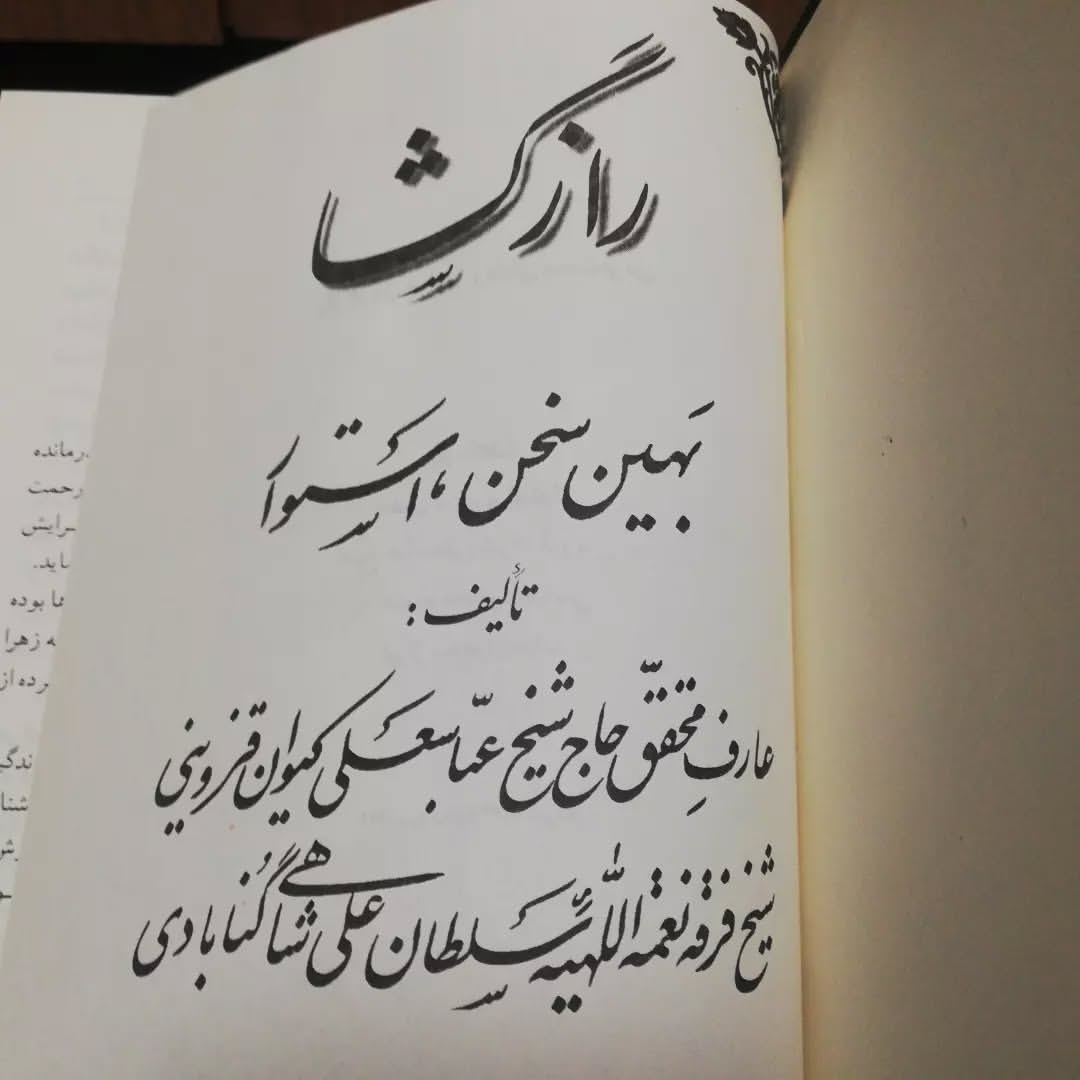 رازگشا
بهین سخن، استوار
تألیف:
عارفِ محقّق حاج شیخ عبّاسعلی کیوان قزوینی
شیخ فرقه نعمة اللّهیه سلطان علی شاهی گنابادی
رمانده
رحمت
ساید.
ها بوده
ه زهرا
رده از